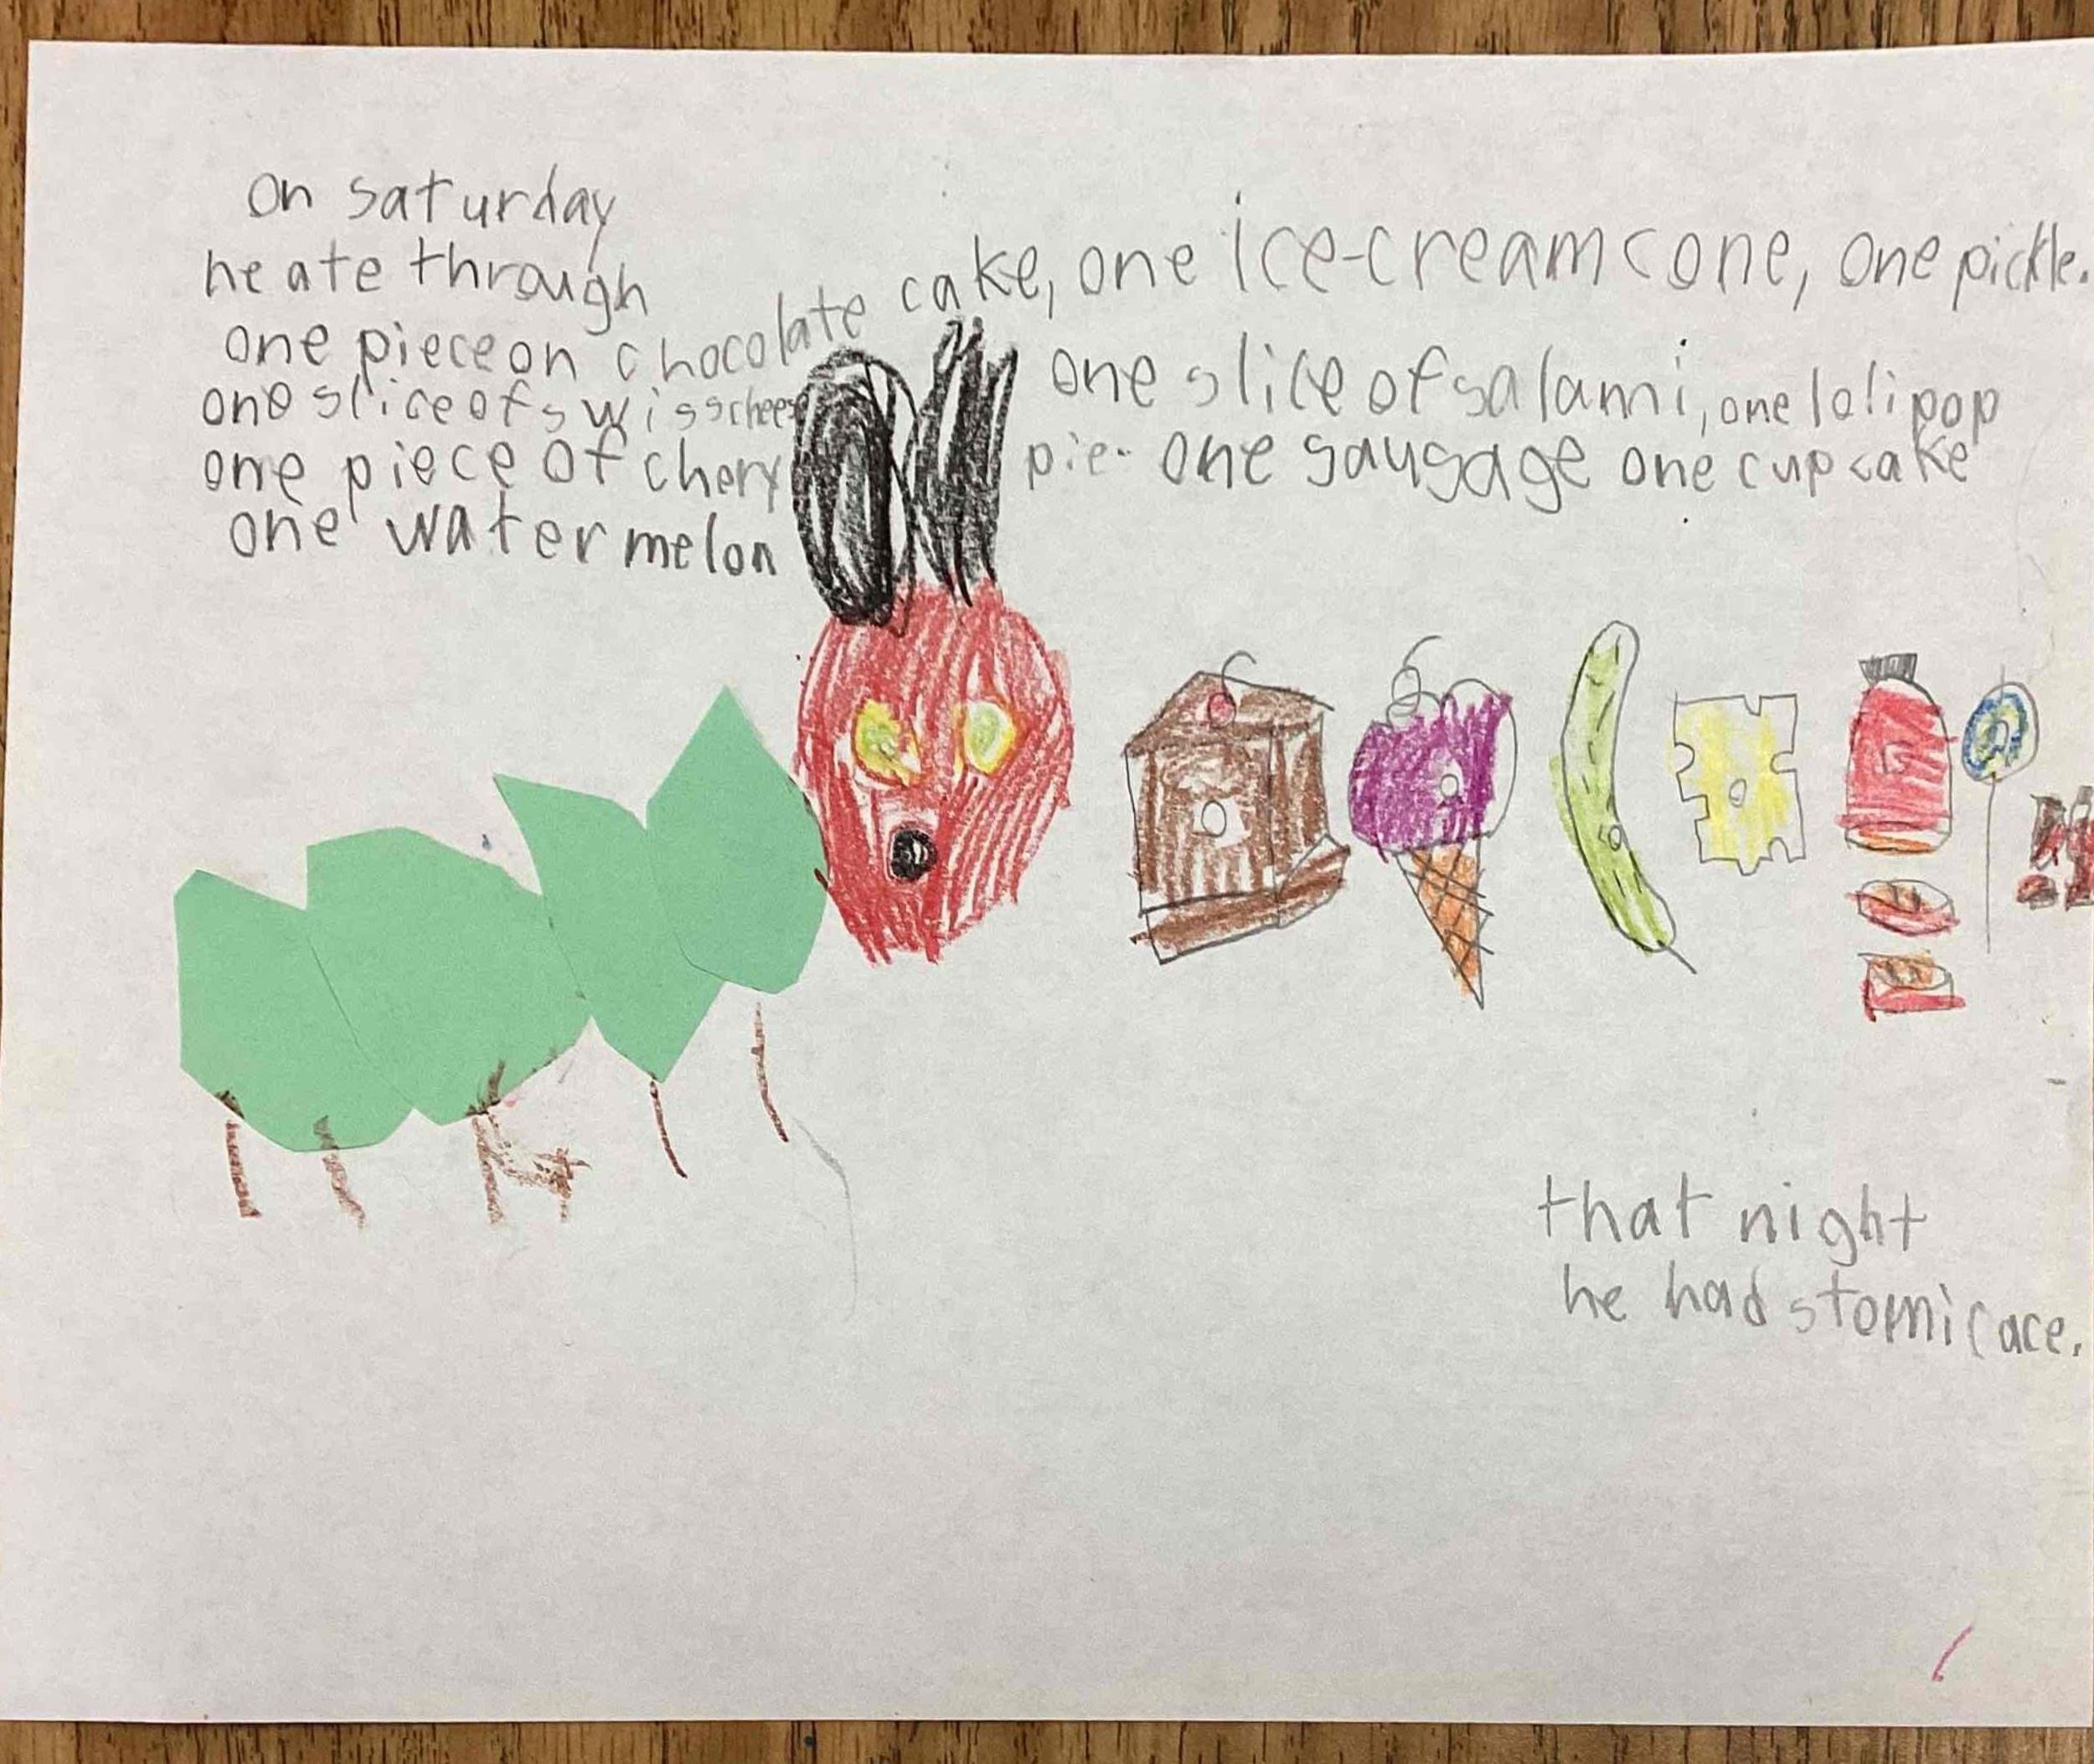 on saturday
he ate through
one piece on chocolate cake, one ice-cream cone, one pickle.
one slice of swiss cheese one slice of salami, one lolipop
one piece of chery pie. one sausage one cupcake
one watermelon
that night
he had stomicace.